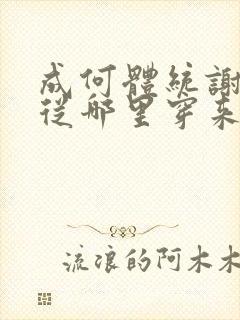 成何體統謝
從哪里穿来
流浪的阿木木